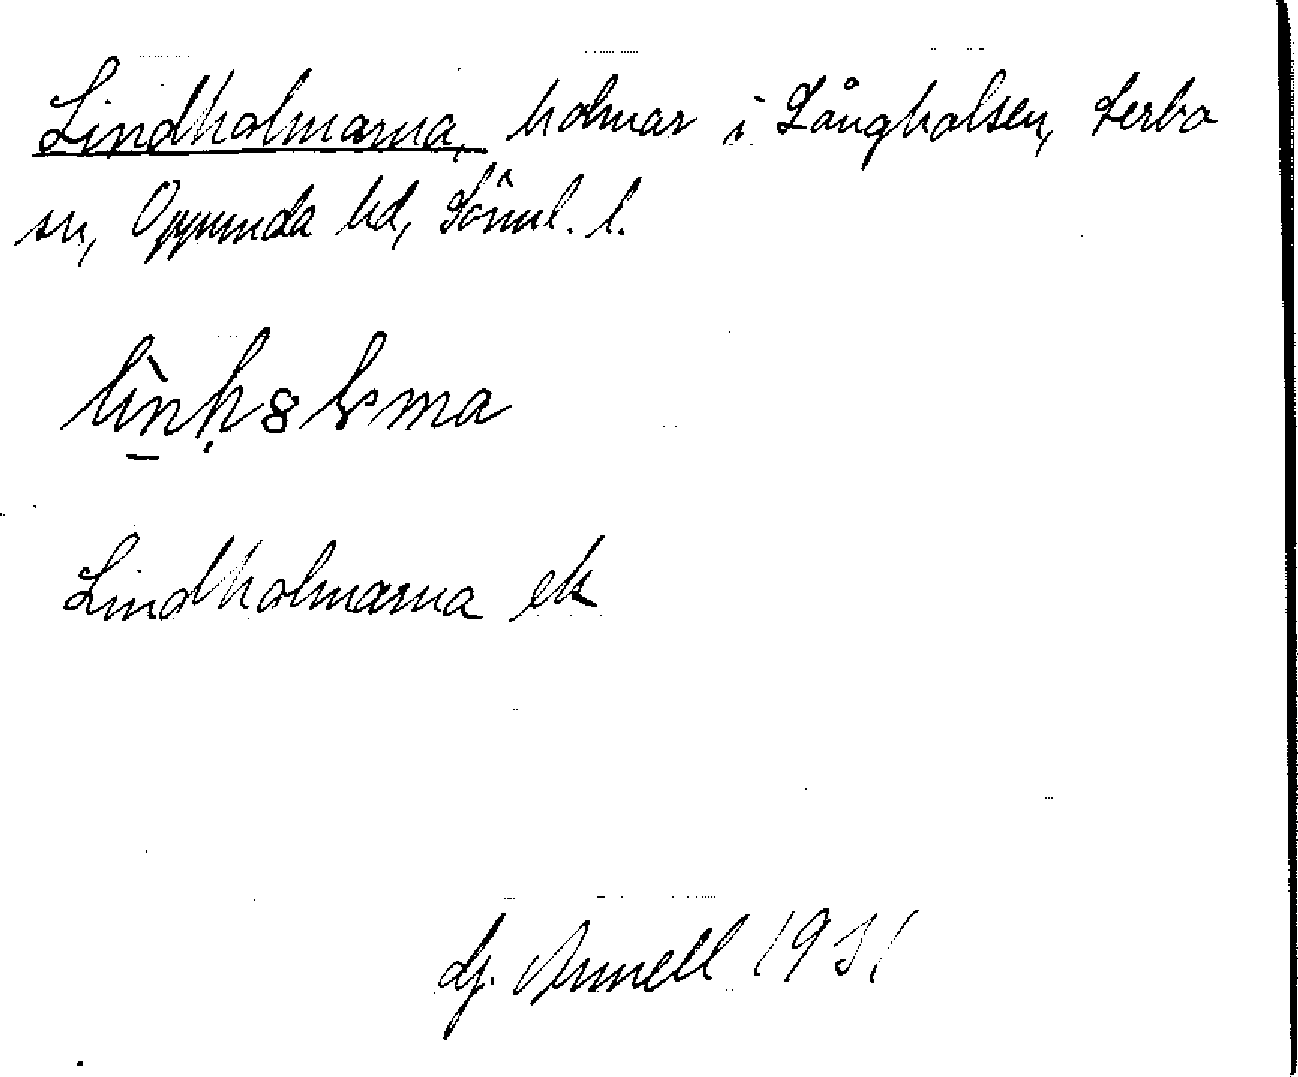 Lindholmarna, holmar i Långhalsen, Lerbo
sn, Oppunda hd, Söml. l.
lìnhölma
Lindholmarna ek
Lj. Arnell 1931